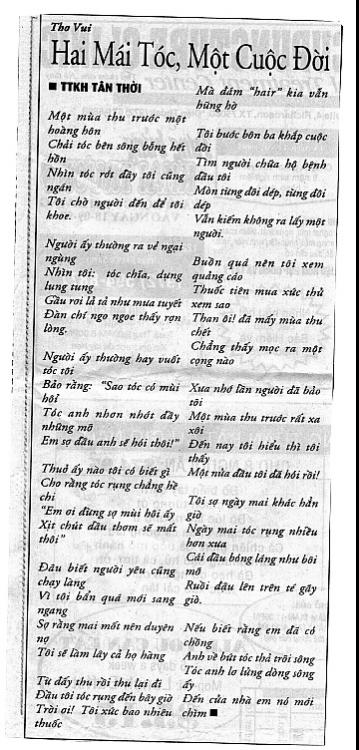 Thơ Vui
Hai Mái Tóc, Một Cuộc Đời
■ TTKH TÂN THỜI
Một mùa thu trước một
hoàng hôn
Chải tóc bên sông bỗng hết
hồn
Nhìn tóc rớt đầy tôi cũng
ngán
Tôi chờ người đến để tôi
khoe.
Người ấy thường ra vẻ ngại
ngùng
Nhìn tôi: tóc chĩa, dựng
lung tung
Gầu rơi lả tả như mưa tuyết
Đàn chí ngo ngoe thấy rợn
lòng.
Người ấy thường hay vuốt
tóc tôi
Bảo rằng: "Sao tóc có mùi
hôi
Tóc anh nhơn nhớt đầy
những mỡ
Em sợ đầu anh sẽ hói thôi!"
Thuở ấy nào tôi có biết gì
Cho rằng tóc rụng chẳng hề
chi
"Em ơi đừng sợ mùi hôi ấy
Xịt chút dầu thơm sẽ mất
thôi"
Đâu biết người yêu cũng
chạy làng
Vì tôi bẩn quá mới sang
ngang
Sợ rằng mai mốt nên duyên
nợ
Tôi sẽ làm lây cả họ hàng
Từ đấy thu rồi thu lại đi
Đầu tôi tóc rụng đến bây giờ
Trời ơi! Tôi xức bao nhiêu
thuốc
Mà đám "hair" kia vẫn
hững hờ
Tôi bước bôn ba khắp cuộc
đời
Tìm người chữa hộ bệnh
đầu tôi
Mòn từng đôi dép, từng đôi
dép
Vẫn kiếm không ra lấy một
người.
Buồn quá nên tôi xem
quảng cáo
Thuốc tiên mua xức thử
xem sao
Than ôi! đã mấy mùa thu
chết
Chẳng thấy mọc ra một
cọng nào
Xưa nhớ lần người đã bảo
tôi
Một mùa thu trước rất xa
xôi
Đến nay tôi hiểu thì tôi
thấy
Một nửa đầu tôi đã hói rồi!
Tôi sợ ngày mai khác hẳn
giờ
Ngày mai tóc rụng nhiều
hơn xưa
Cái đầu bóng láng như bôi
mỡ
Ruồi đậu lên trên té gãy
giò.
Nếu biết rằng em đã có
chồng
Anh về bứt tóc thả trôi sông
Tóc anh lơ lửng dòng sông
ấy
Đến cửa nhà em nó mới
chìm ■